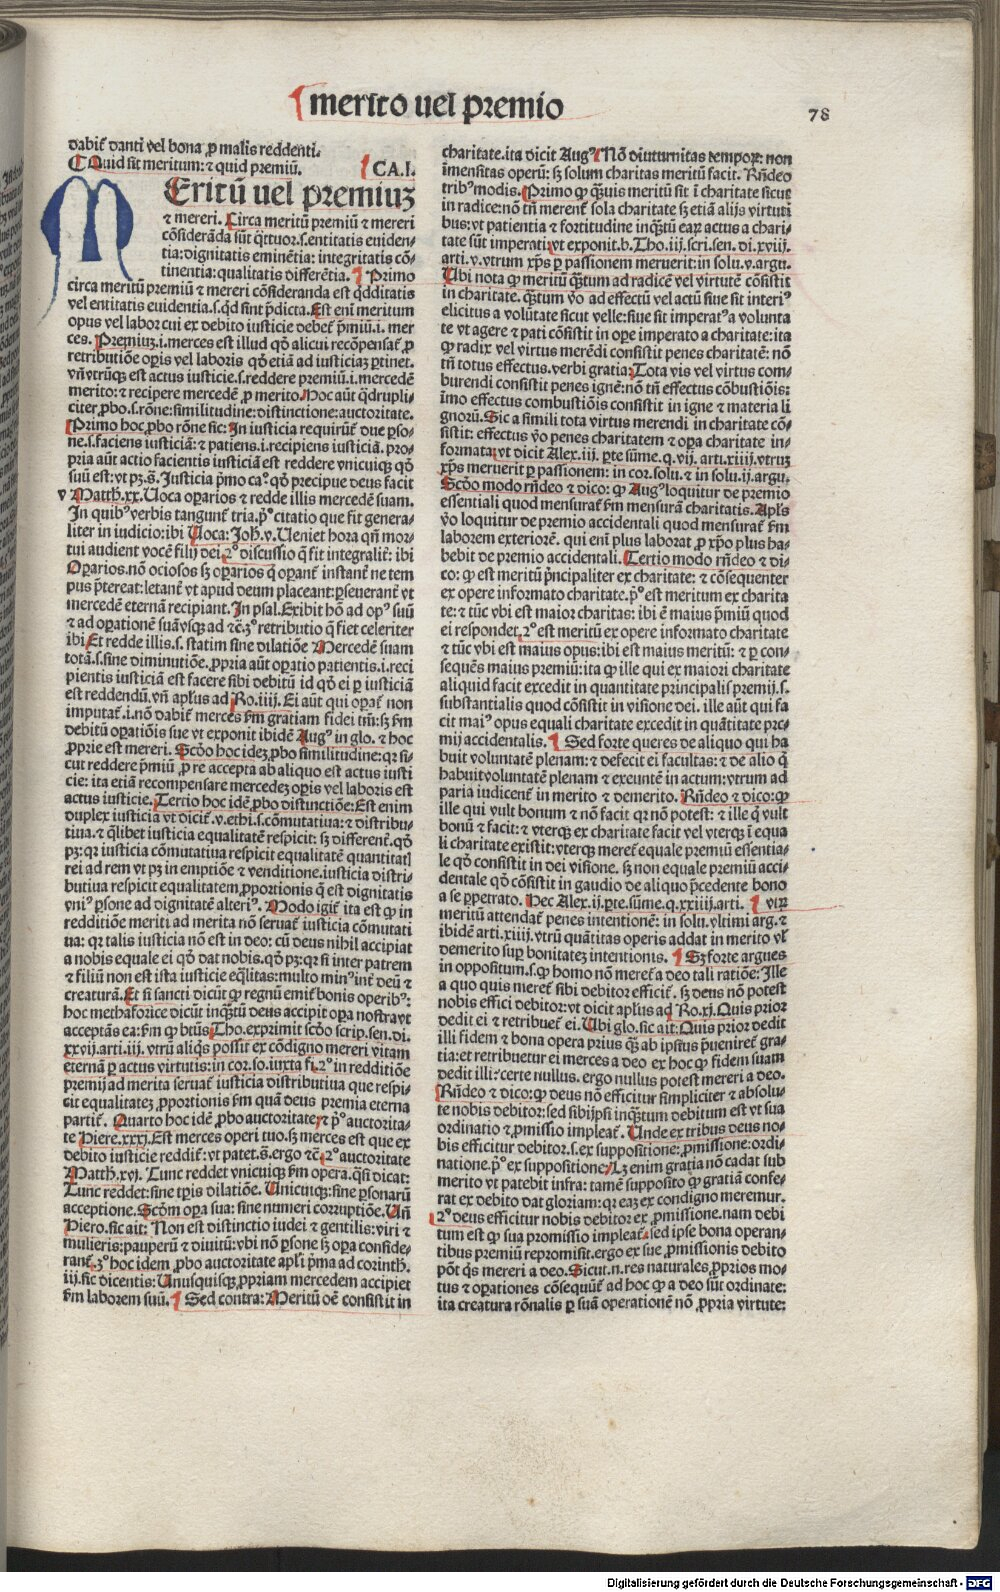 ¶ merito vel premio
78
dabit̄ danti vel bona ꝓ malis reddenti.
¶ Quid sit meritum: ⁊ quid premiū. ¶ CA.I.
MEritū vel premiuz
⁊ mereri. Circa meritū premiū ⁊ mereri
cōsiderāda sūt q̈ttuor.s.entitatis euiden-
tia: dignitatis eminētia: integritatis cō-
tinentia: qualitatis differētia. ¶ Primo
circa meritū premiū ⁊ mereri cōsideranda est qd̄ditatis
vel entitatis euidentia.s.qd̄ sint p̄dicta. Est eni meritum
opus vel labor cui ex debito iusticie debet̄ p̄miū.i. mer
ces. Premiuz.i.merces est illud qd̄ alicui recōpensat̄ ꝓ
retributiōe oꝑis vel laboris qd̄ etiā ad iusticiaz ꝑtinet.
vn̄ vtrūqꝫ est actus iusticie.s.reddere premiū.i.mercedē
merito: ⁊ recipere mercedē ꝓ merito. Hoc aūt q̈drupli-
citer ꝓbo.s.rōne: similitudine: distinctione: auctoritate.
Primo hoc ꝓbo rōne sic: In iusticia requirūt̄ due ꝑso-
ne.s.faciens iusticiā: ⁊ patiens.i.recipiens iusticiā. pro-
pria aūt actio facientis iusticiā est reddere vnicuiqꝫ qd̄
suū est: vt pꝫ.ff. Justicia p̄mo ca°. qd̄ precipue deus facit
v Matth.xx. Uoca oꝑarios ⁊ redde illis mercedē suam.
In quibꝰ verbis tangunt̄ tria. p̊ citatio que fit genera-
liter in iudicio: ibi Uoca: Joh̄.v. Ueniet hora qn̄ mor-
tui audient vocē filij dei. 2° discussio q̄ fit integralit̄: ibi
Oꝑarios. nō ociosos sꝫ oꝑarios q̄ oꝑant̄ instant̄ ne tem
pus p̄tereat: letant̄ vt apud deum placeant: ꝑseuerant̄ vt
mercedē eternā recipiant. In psal. Exibit hō ad opꝰ suū
⁊ ad oꝑationē suā vsqꝫ ad ⁊c̄. 3° retributio q̄ fiet celeriter
ibi Et redde illis.s. statim sine dilatiōe Mercedē suam
totā.s.sine diminutiōe. ꝓpria aūt oꝑatio patientis.i.reci
pientis iusticiā est facere sibi debitū id qd̄ ei ꝑ iusticiā
est reddendū. vn̄ apl̄us ad Ro.iiij. Ei aūt qui oꝑat̄ non
imputat̄.i.nō dabit̄ merces fm̄ gratiam fidei tm̄: sꝫ fm̄
debitū oꝑatiōis sue vt exponit ibidē Augꝰ in glo. ⁊ hoc
ꝓprie est mereri. Scd̄o hoc idez ꝓbo similitudine: qꝛ si-
cut reddere p̄miū ꝓ re accepta ab aliquo est actus iusti
cie: ita etiā recompensare mercedez oꝑis vel laboris est
actus iusticie. Tertio hoc idē ꝓbo distinctiōe: Est enim
duplex iusticia vt dicit̄.v.ethi.s.cōmutatiua: ⁊ distribu-
tiua. ⁊ q̄libet iusticia equalitatē respicit: sꝫ different̄. qd̄
pꝫ: qꝛ iusticia cōmutatiua respicit equalitatē quantitatꝭ
rei ad rem vt pꝫ in emptiōe ⁊ venditione. iusticia distri-
butiua respicit equalitatem ꝓportionis q̄ est dignitatis
vniꝰ ꝑsone ad dignitatē alteriꝰ. Modo igit̄ ita est ꝙ in
redditiōe meriti ad merita nō seruat̄ iusticia cōmutati
ua: qꝛ talis iusticia nō est in deo: cū deus nihil accipiat
a nobis equale ei qd̄ dat nobis. qd̄ pꝫ: qꝛ si inter patrem
⁊ filiū non est ista iusticie eq̄litas: multo minꝰ int̄ deū ⁊
creaturā. Et si sancti dicūt ꝙ regnū emit̄ bonis operibꝰ:
hoc methaforice dicūt inq̈tū deus accipit oꝑa nostra vt
acceptās ea: fm̄ ꝙ btūs Tho. exprimit scd̄o scrip.sen.di.
xxvij.arti.iij. vtrū aliq̄s possit ex cōdigno mereri vitam
eternā ꝑ actus virtutis: in cor.so. iuxta fi. 2° in redditiōe
premij ad merita seruat̄ iusticia distributiua que respi-
cit equalitatez ꝓportionis fm̄ quā deus premia eterna
partit̄. Quarto hoc idē ꝓbo auctoritate ⁊ p̊ auctorita-
te Hiere.xxxj. Est merces operi tuo. sꝫ merces est que ex
debito iusticie reddit̄: vt patet.ff. ergo ⁊c̄. 2° auctoritate
Matth.xvj. Tunc reddet vnicuiqꝫ fm̄ opera. q̄si dicat:
Tunc reddet: sine tꝑis dilatiōe. Unicuiqꝫ: sine ꝑsonarū
acceptione. Scd̄m oꝑa sua: sine numeri corruptiōe. Un̄
Hiero. sic ait: Non est distinctio iudei ⁊ gentilis: viri ⁊
mulieris: pauperū ⁊ diuitū: vbi nō ꝑsone sꝫ oꝑa conside-
rant̄. 3° hoc idem ꝓbo auctoritate apl̄i p̄ma ad corinth.
iij. sic dicentis: Unusquisqꝫ ꝓpriam mercedem accipiet
fm̄ laborem suū. ¶ Sed contra: Meritū oē consistit in
charitate. ita dicit Augꝰ Nō diuturnitas temporꝫ: non
īmensitas operū: sꝫ solum charitas meritū facit. Rn̄deo
tribꝰ modis. Primo ꝙ q̈uis meritū sit ī charitate sicut
in radice: nō tn̄ merent̄ sola charitate sꝫ etiā alijs virtuti
bus: vt patientia ⁊ fortitudine inq̈tū earꝫ actus a chari-
tate sūt imperati: vt exponit.b.Tho.iij.scri.sen.di.xviij.
arti.v.vtrum xp̄s ꝑ passionem meruerit: in solu.v.argu.
Ubi nota ꝙ meritū q̈tum ad radicē vel virtutē cōsistit
in charitate. q̈tum v̄o ad effectū vel actū siue sit interiꝰ
elicitus a volūtate sicut velle: siue sit imperatꝰ a volunta
te vt agere ⁊ pati cōsistit in oꝑe imperato a charitate: ita
ꝙ radix vel virtus merēdi consistit penes charitatē: nō
tn̄ totus effectus. verbi gratia: Tota vis vel virtus com-
burendi consistit penes ignē: nō tn̄ effectus cōbustiōis:
īmo effectus combustiōis consistit in igne ⁊ materia li
gnorū. Sic a simili tota virtus merendi in charitate cō-
sistit: effectus v̄o penes charitatem ⁊ oꝑa charitate in-
formata: vt dicit Alex.iij. ꝑte sūme.q.vij. arti.xiiij. vtruz
xp̄s meruerit ꝑ passionem: in cor.solu. ⁊ in solu.ij.argu.
Scd̄o modo rn̄deo ⁊ dico: ꝙ Augꝰ loquitur de premio
essentiali quod mensurat̄ fm̄ mensurā charitatis. Apl̄s
v̄o loquitur de premio accidentali quod mensurat̄ fm̄
laborem exteriorē. qui eni plus laborat ꝓ xp̄o plus ha-
bebit de premio accidentali. Tertio modo rn̄deo ⁊ di-
co: ꝙ est meritū p̄ncipaliter ex charitate: ⁊ cōsequenter
ex opere informato charitate. p̊ est meritum ex charita
te: ⁊ tūc vbi est maior charitas: ibi ē maius p̄miū quod
ei respondet. 2° est meritū ex opere informato charitate
⁊ tūc vbi est maius opus: ibi est maius meritū: ⁊ ꝑ con-
sequēs maius premiū: ita ꝙ ille qui ex maiori charitate
aliquid facit excedit in quantitate principalis premij.s.
substantialis quod cōsistit in visiōne dei. ille aūt qui fa
cit maiꝰ opus equali charitate excedit in quātitate pre
mij accidentalis. ¶ Sed forte queres de aliquo qui ha
buit voluntatē plenam: ⁊ defecit ei facultas: ⁊ de alio q̄
habuit voluntatē plenam ⁊ exeuntē in actum: vtrum ad
paria iudicent̄ in merito ⁊ demerito. Rn̄deo ⁊ dico: ꝙ
ille qui vult bonum ⁊ nō facit qꝛ nō potest: ⁊ ille q̄ vult
bonū ⁊ facit: ⁊ vterqꝫ ex charitate facit vel vterqꝫ ī equa
li charitate existit: vterqꝫ meret̄ equale premiū essentia-
le qd̄ consistit in dei visiōne. sꝫ non equale premiū acci-
dentale qd̄ cōsistit in gaudio de aliquo p̄cedente bono
a se ꝑpetrato. Hec Alex.ij.ꝑte.sūme.q.xxiiij.arti. ¶ vtꝝ
meritū attendat̄ penes intentionē: in solu. vltimi arg. ⁊
ibidē arti.xiiij. vtrū quātitas operis addat in merito vl̄
demerito suꝑ bonitatez intentionis. ¶ Sꝫ forte argues
in oppositum.s.ꝙ homo nō meret̄ a deo tali ratiōe: Ille
a quo quis meret̄ sibi debitor efficit̄. sꝫ deus nō potest
nobis effici debitor: vt dicit apl̄us ad Ro.xj. Quis prior
dedit ei ⁊ retribuet̄ ei. Ubi glo. sic ait: Quis prior dedit
illi fidem ⁊ bona opera prius q̈ ab ipsius p̄ueniret̄ gra-
tia: et retribuetur ei merces a deo ex hoc ꝙ fidem suam
dedit illi: certe nullus. ergo nullus potest mereri a deo.
Rn̄deo ⁊ dico: ꝙ deus nō efficitur simpliciter ⁊ absolu-
te nobis debitor: sed sibijpsi inq̈tum debitum est vt sua
ordinatio ⁊ ꝓmissio impleat̄. Unde ex tribus deus no-
bis efficitur debitor.s.ex suppositione: ꝓmissione: ordi-
natione. p̊ ex suppositione: Lꝫ enim gratia nō cadat sub
merito vt patebit infra: tamē supposito ꝙ gratiā confe-
rat ex debito dat gloriam: qꝛ eaz ex condigno meremur.
2° deus efficitur nobis debitor ex ꝓmissione. nam debi
tum est ꝙ sua promissio impleat̄. sed ipse bona operan-
tibus premiū repromisit. ergo ex sue ꝓmissionis debito
pōt q̄s mereri a deo. Sicut.n.res naturales ꝓprios mo-
tus ⁊ oꝑationes cōsequūt̄ ad hoc ꝙ a deo sūt ordinate:
ita creatura rōnalis ꝑ suā operationē nō ꝓpria virtute:
Digitalisierung gefördert durch die Deutsche Forschungsgemeinschaft - DFG